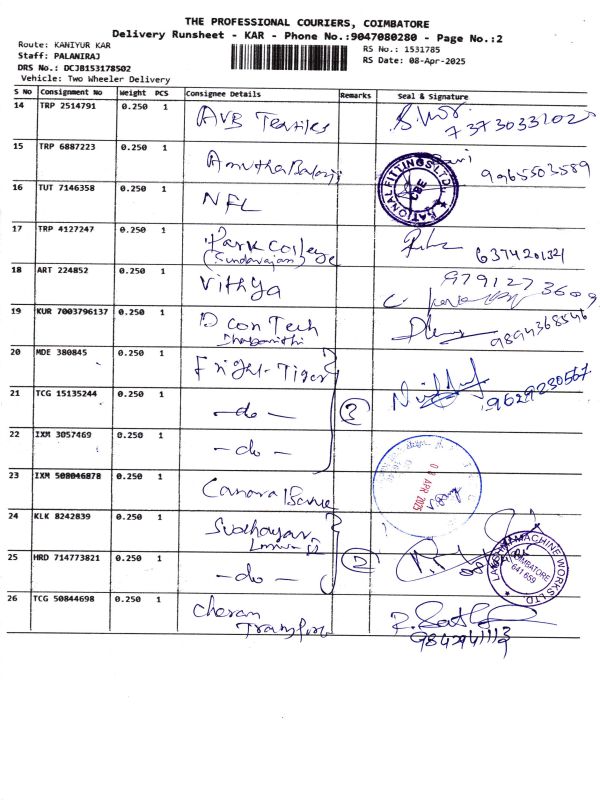 THE PROFESSIONAL COURIERS, COIMBATORE
Delivery Runsheet - KAR - Phone No.:9047080280 - Page No.:2
Route: KANIYUR KAR
Staff: PALANIRAJ
DRS No.: DCJB1531785O2
Vehicle: Two Wheeler Delivery
RS No.: 1531785
RS Date: 08-Apr-2025
S No Consignment No Weight PCS Consignee Details Remarks Seal & Signature
14 TRP 2514791 0.250 1 AVB Textiles
15 TRP 6887223 0.250 1 Amutha Balaji 9965503589
16 TUT 7146358 0.250 1 NFL
NATIONAL FITTINGS LTD. CBE
17 TRP 4127247 0.250 1 Park College 6374201321
(Sundarajan)
18 ART 224852 0.250 1 Vithya 979127 3609
19 KUR 7003796137 0.250 1 D Con Tech 9894368546
20 MDE 380845 0.250 1 Fright-Tiger 9629230567
21 TCG 15135244 0.250 1 -do- 3
22 IXM 3057469 0.250 1 -do-
23 IXM 508046878 0.250 1 Canara Bank
08 APR 2025
24 KLK 8242839 0.250 1
25 HRD 714773821 0.250 1 -do- 2
LAKSHMI MACHINE WORKS LTD. COIMBATORE 641 659
26 TCG 50844698 0.250 1 Cheran
Transport